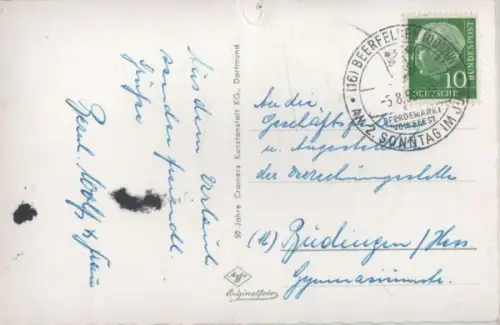 Aus dem Urlaub
senden freundl.
Grüße
Wolf u. Frau
50 Jahre Cramers Kunstanstalt KG., Dortmund
Agfa
Originalfoto
(16) BEERFELDEN
-5.8.
PFERDEMARKT
VOLKSFEST
AM 2. SONNTAG IM
10
DEUTSCHE
BUNDESPOST
An die
Geschäftsf
u. Angestellte
der Verrechnungsstelle
(16) Büdingen/Hess
Gymnasiumstr.